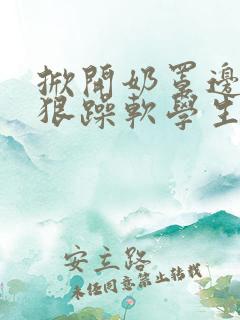 掀開奶罩邊
狠躁軟學生
安立路
未经同意禁止转载